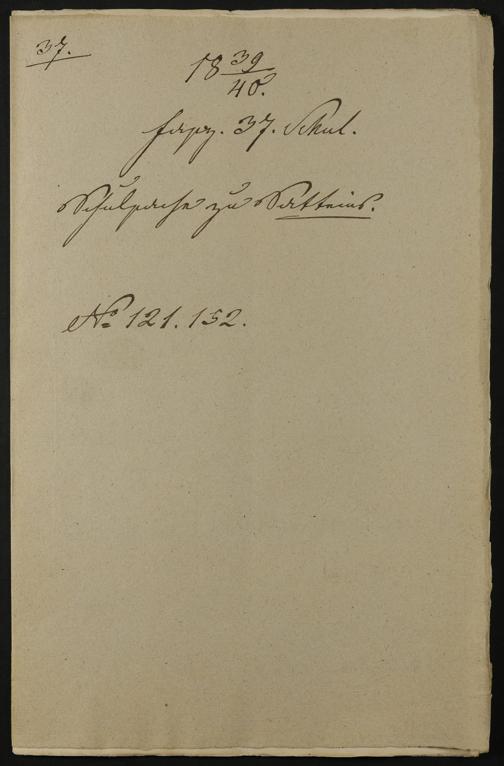 37.
18 39/40.
Fasz. 37. Schul.
Schulsache zu Satteins.
No 121. 152.